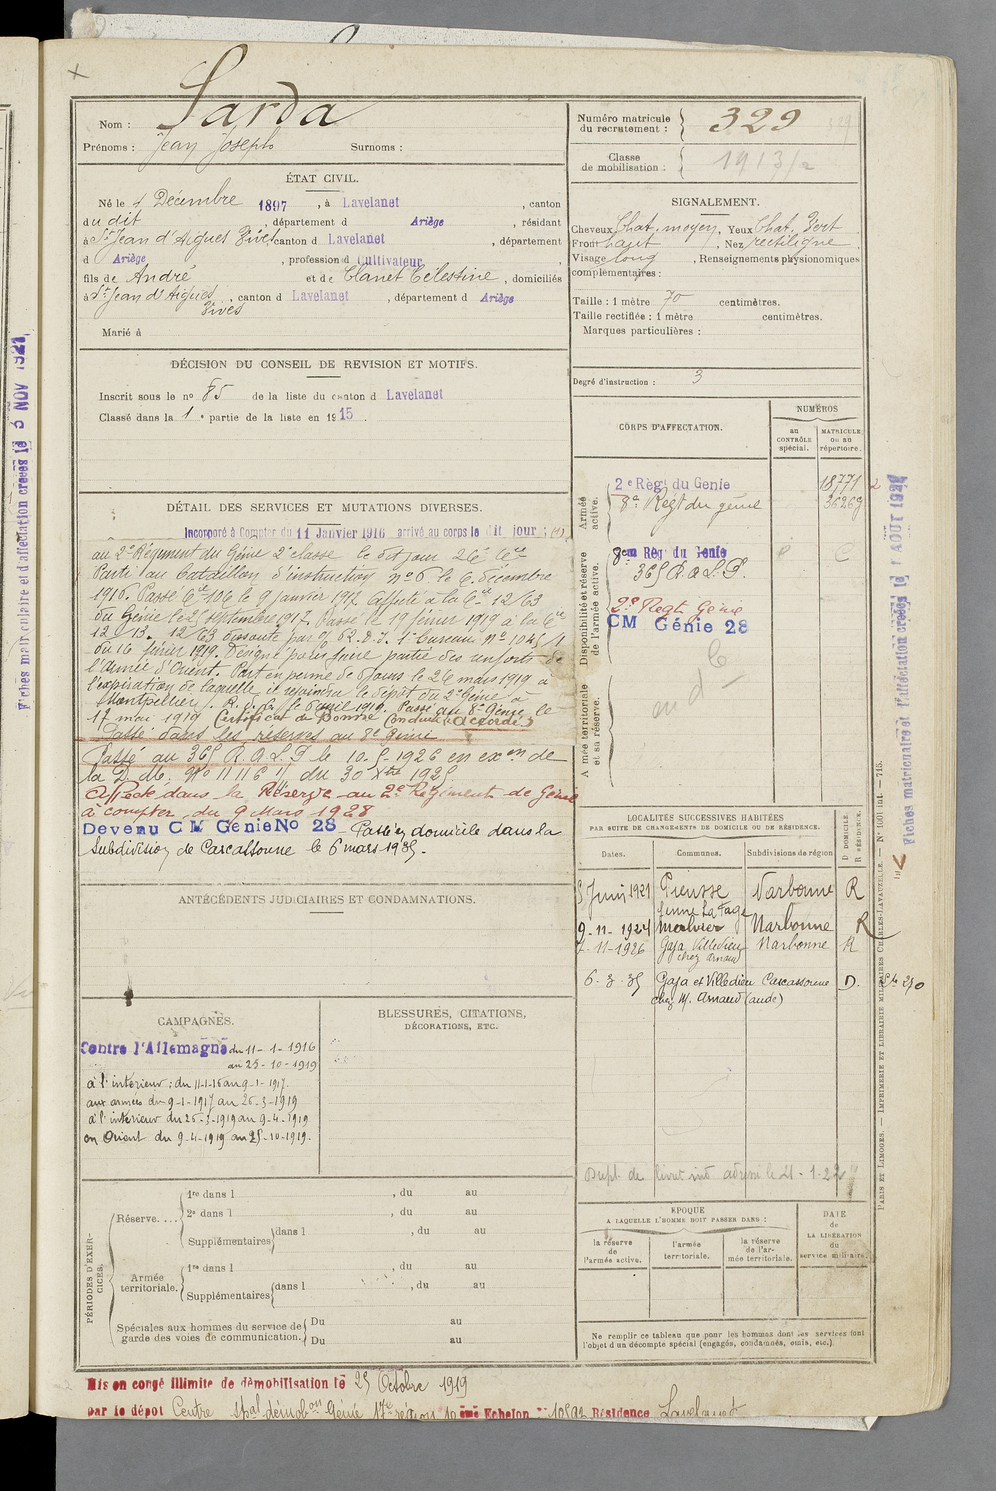 Nom : Sarda
Prénoms : Jean Joseph Surnoms :
Numéro matricule du recrutement : 329
Classe de mobilisation : 1913/2
ÉTAT CIVIL.
Né le 4 Décembre 1897, à Lavelanet, canton
du dit, département d Ariège, résidant
à St Jean d'Aigues Vives canton d Lavelanet, département
d Ariège, profession d Cultivateur
fils de André et de Clanet Célestine, domiciliés
à St Jean d'Aigues Vives, canton d Lavelanet, département d Ariège
Marié à
SIGNALEMENT.
Cheveux Chat. moyen, Yeux Chat. Vert
Front haut, Nez rectiligne
Visage long, Renseignements physionomiques
complémentaires :
Taille : 1 mètre 70 centimètres.
Taille rectifiée : 1 mètre centimètres.
Marques particulières :
Degré d'instruction : 3
DÉCISION DU CONSEIL DE REVISION ET MOTIFS.
Inscrit sous le no 85 de la liste du canton d Lavelanet
Classé dans la 1e partie de la liste en 1915.
CORPS D'AFFECTATION.
NUMÉROS
au CONTRÔLE spécial.
MATRICULE ou au répertoire.
Armée active.
2e Régt du Génie 18771
8e Régt du génie 36269
Disponibilité et réserve de l'armée active.
8em Rég du Génie
365 R.A.L.P.
2e Regt Génie
CM Génie 28
Armée territoriale et sa réserve.
DÉTAIL DES SERVICES ET MUTATIONS DIVERSES.
Incorporé à Compter du 11 Janvier 1916 arrivé au corps le dit jour
au 2e Régiment du Génie 2e classe le dit jour
Parti au bataillon d'instruction no 6 le 6 décembre
1916. Passé Cie 10/6 le 9 janvier 1917 affecté à la Cie 12/63
du Génie le 25 septembre 1917. Passé le 19 février 1919 à la Cie
12/13. 12/63 dissoute par
du 16 février 1919. Désigné pour faire partie des renforts de
l'Armée d'Orient. Part en perme de jours le 26 mars 1919 à
l'expiration de laquelle il rejoindra le dépôt du 2e Génie à
Montpellier. avril 1919. Passé au 8e Génie le
17 mai 1919 Certificat de Bonne Conduite "Accordé"
Passé dans les réserves au 8e Génie
Passé au 365 R.A.L.P le 10-5-1926 en exon de
la D.M. No 11116 du 30 Xbre 1925
Affecté dans la Réserve au 2e Régiment de Génie
à compter du 9 Mars 1928
Devenu CM Génie No 28 - Passé en domicile dans la
Subdivision de Carcassonne le 6 mars 1935.
ANTÉCÉDENTS JUDICIAIRES ET CONDAMNATIONS.
LOCALITÉS SUCCESSIVES HABITÉES
PAR SUITE DE CHANGEMENTS DE DOMICILE OU DE RÉSIDENCE.
Dates. Communes. Subdivisions de région D DOMICILE. R RÉSIDENCE.
5 Juin 1921 Pieusse Narbonne R
ferme La Fage
9-11-1924 Narbonne R
7-11-1926 Gaja Villedieu chez Arnaud Narbonne R
6-3-35 Gaja et Villedieu Carcassonne D.
chez M. Arnaud (aude)
CAMPAGNES.
Contre l'Allemagne du 11-1-1916
au 25-10-1919
à l'intérieur : du 11-1-16 au 9-1-1917.
aux armées du 9-1-1917 au 26-3-1919
à l'intérieur du 26-3-1919 au 9-4-1919
en Orient du 9-4-1919 au 25-10-1919.
BLESSURES, CITATIONS,
DÉCORATIONS, ETC.
Dupl. de livret ind adressé le 21-1-22
PÉRIODES D'EXERCICES.
Réserve....
1re dans l , du au
2e dans l , du au
Supplémentaires dans l , du au
Armée territoriale.
1re dans l , du au
Supplémentaires dans l , du au
Spéciales aux hommes du service de garde des voies de communication.
Du au
Du au
ÉPOQUE
A LAQUELLE L'HOMME DOIT PASSER DANS :
la réserve de l'armée active.
l'armée territoriale.
la réserve de l'armée territoriale.
DATE de LA LIBÉRATION du service militaire.
Ne remplir ce tableau que pour les hommes dont les services font
l'objet d'un décompte spécial (engagés, condamnés, omis, etc.)
Mis en congé illimité de démobilisation le 25 Octobre 1919
par le dépôt Centre spal démobon Génie 17e région 10 ème Echelon Résidence Lavelanet
PARIS ET LIMOGES. — IMPRIMERIE ET LIBRAIRIE MILITAIRES CHARLES-LAVAUZELLE. — No 1001 int. — 715.
Fiches matriculaire et d'affectation créées le 1 AOUT 192
Fiches matriculaire et d'affectation créées le 3 NOV 192